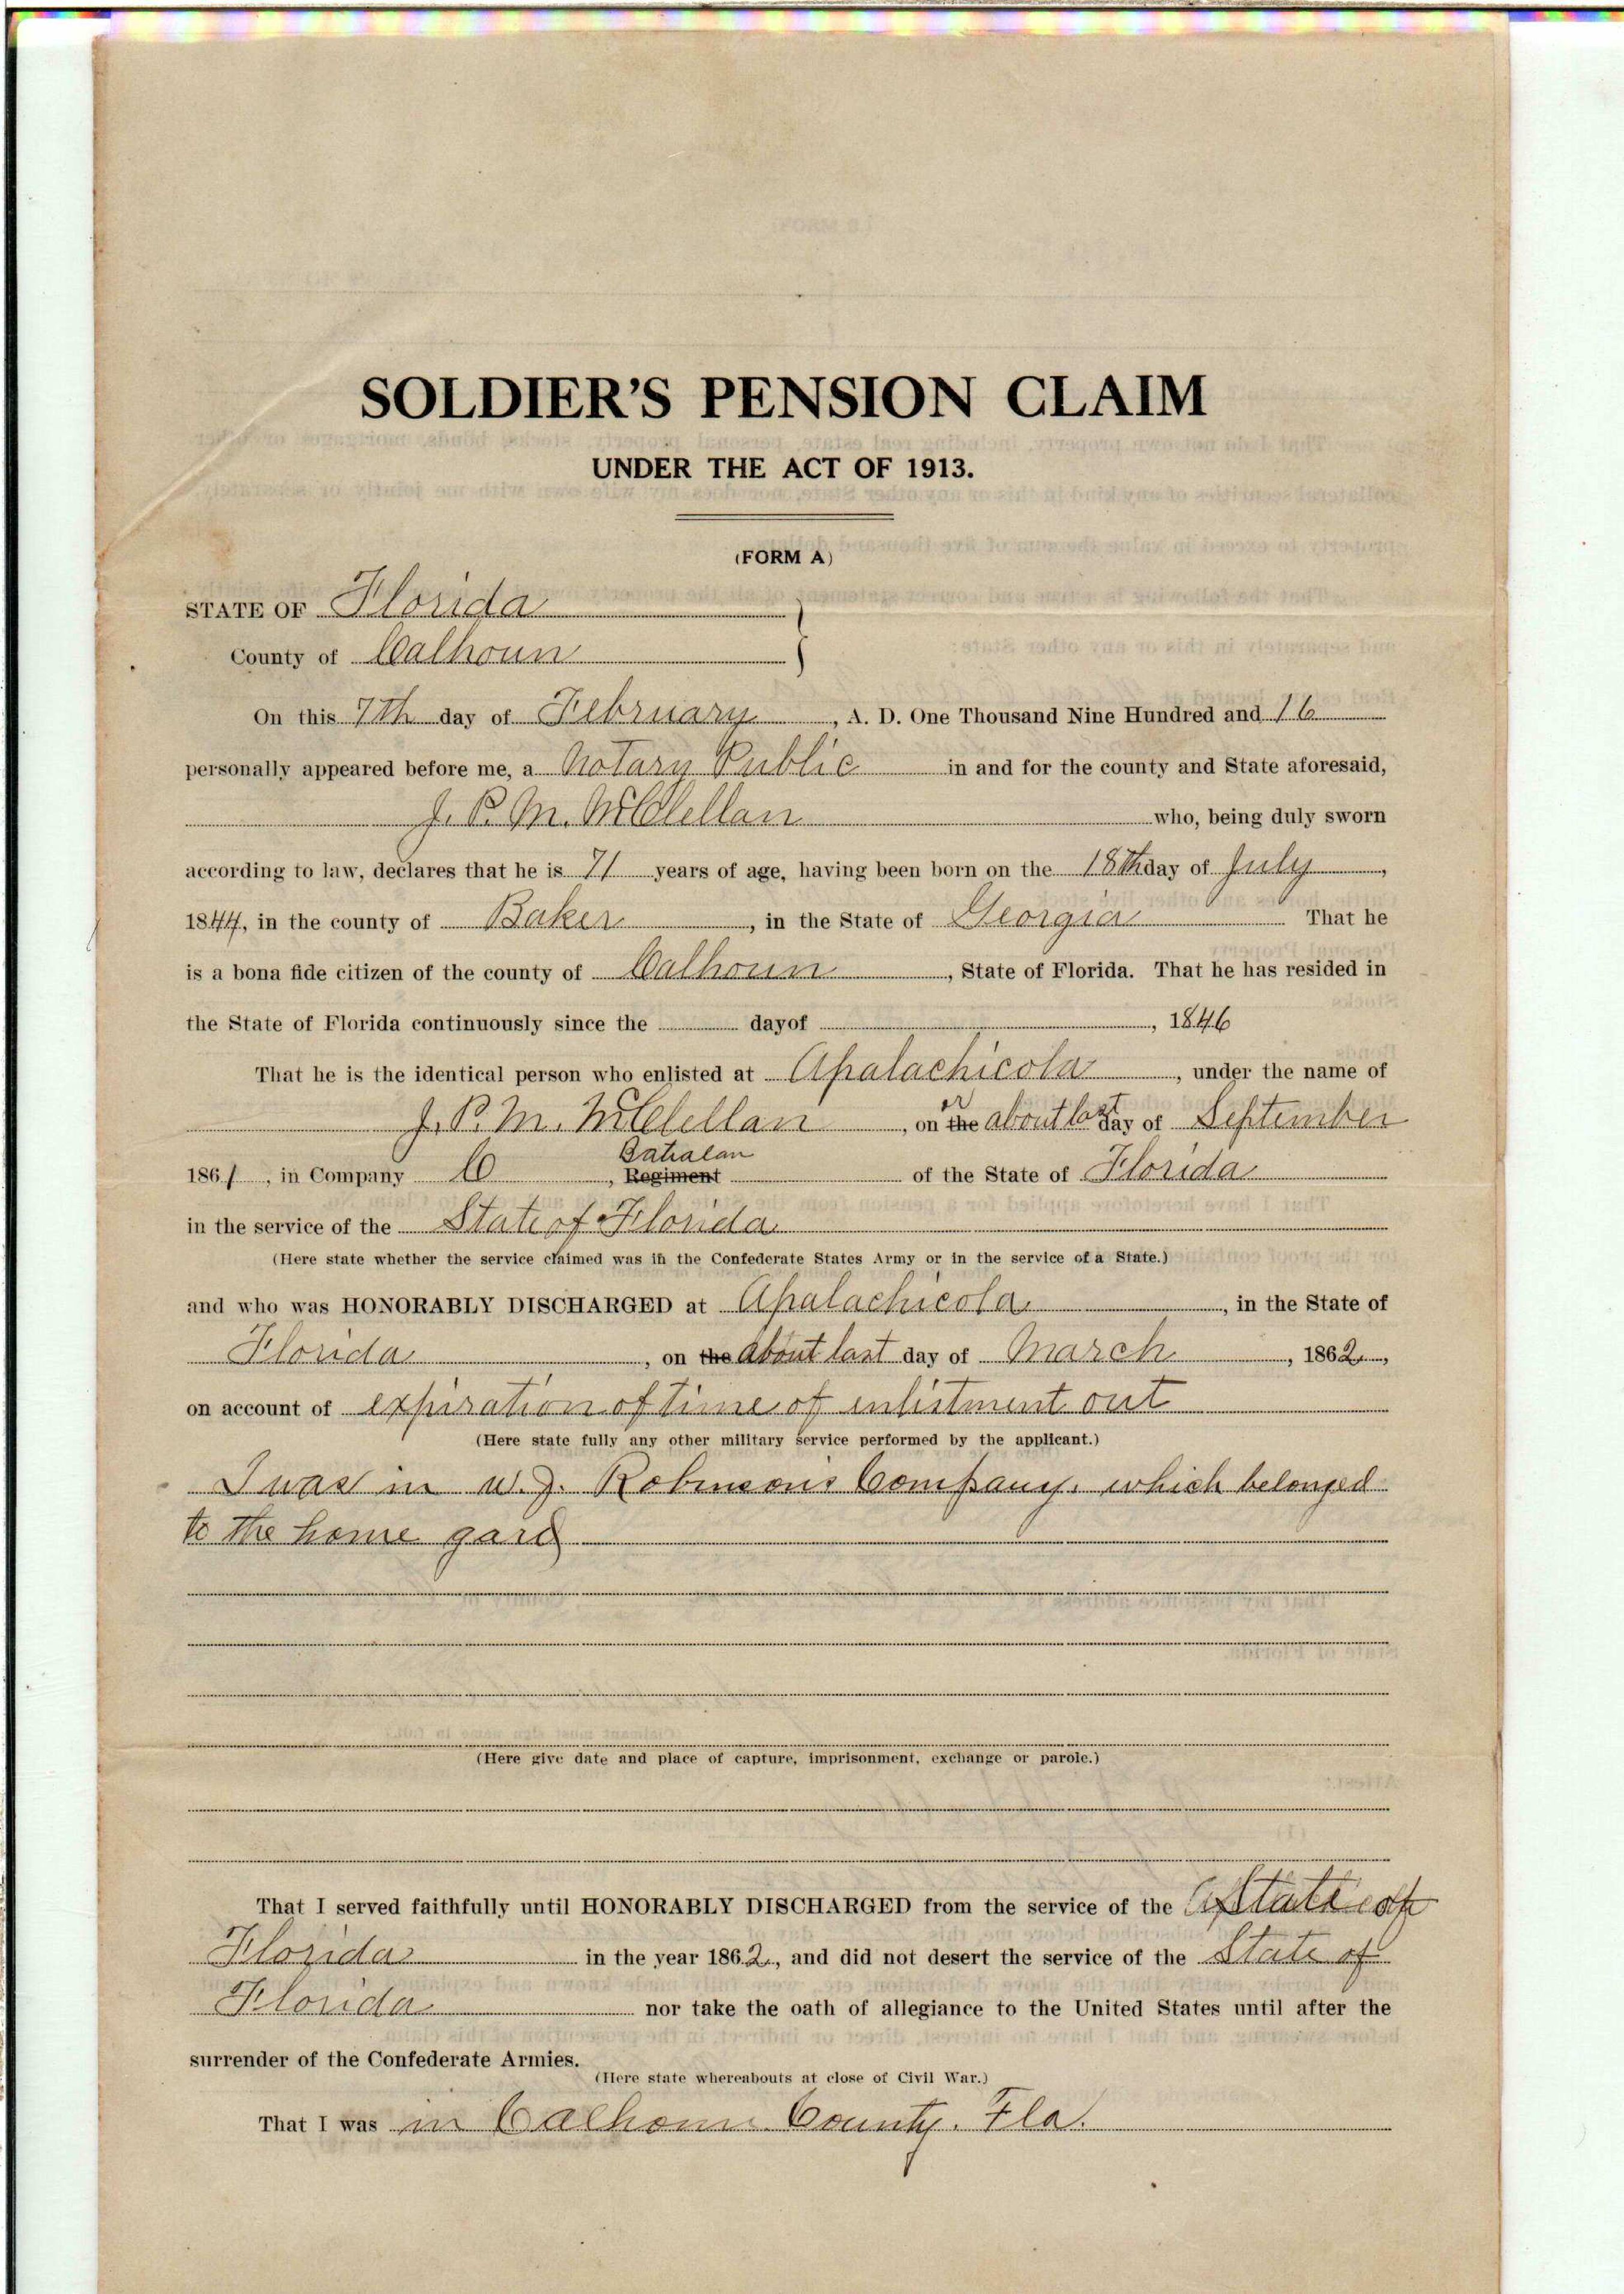 SOLDIER'S PENSION CLAIM
UNDER THE ACT OF 1913.
(FORM A)
STATE OF Florida
County of Calhoun
On this 7th day of February, A. D. One Thousand Nine Hundred and 16
personally appeared before me, a Notary Public in and for the county and State aforesaid,
J. P. M. McClellan who, being duly sworn
according to law, declares that he is 71 years of age, having been born on the 18th day of July,
1844, in the county of Baker, in the State of Georgia That he
is a bona fide citizen of the county of Calhoun, State of Florida. That he has resided in
the State of Florida continuously since the day of , 1846
That he is the identical person who enlisted at Apalachicola, under the name of
J. P. M. McClellan, on the or about last day of September
1861, in Company C, Regiment Batralan of the State of Florida
in the service of the State of Florida
(Here state whether the service claimed was in the Confederate States Army or in the service of a State.)
and who was HONORABLY DISCHARGED at Apalachicola, in the State of
Florida, on the about last day of March, 1862,
on account of expiration of time of enlistment out
(Here state fully any other military service performed by the applicant.)
I was in W. J. Robinsons Company. which belonged
to the home gard
(Here give date and place of capture, imprisonment, exchange or parole.)
That I served faithfully until HONORABLY DISCHARGED from the service of the State of
Florida in the year 1862, and did not desert the service of the State of
Florida nor take the oath of allegiance to the United States until after the
surrender of the Confederate Armies.
(Here state whereabouts at close of Civil War.)
That I was in Calhoun County. Fla.